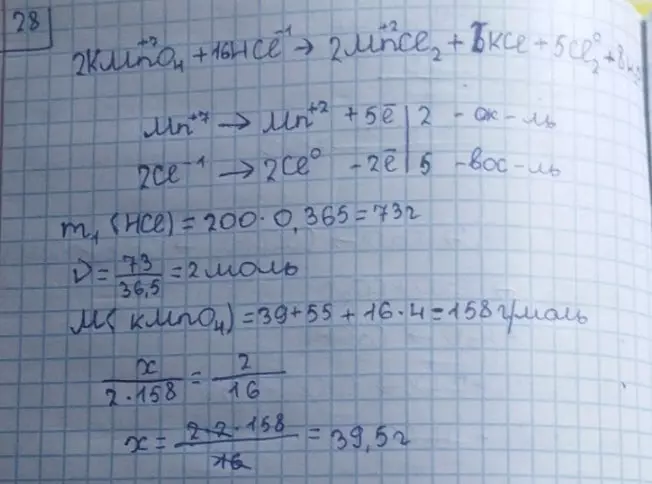 28
2KMn⁺⁷O₄ + 16HCl⁻¹ → 2Mn⁺²Cl₂ + 2KCl + 5Cl₂⁰ + 8H₂
Mn⁺⁷ → Mn⁺² + 5ē | 2 - ок-ль
2Cl⁻¹ → 2Cl⁰ - 2ē | 5 - вос-ль
m₁(HCl) = 200 · 0,365 = 73г
ν = 73/36,5 = 2 моль
M(KMnO₄) = 39 + 55 + 16 · 4 = 158 г/моль
x/2·158 = 2/16
x = 2·2·158/16 = 39,5 г